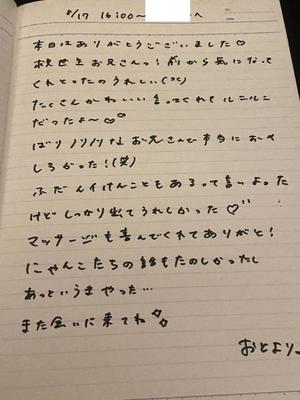 8/17 16:00〜 へ
本日はありがとうございました♡
救世主お兄さんっ！前から気になって
くれとったのうれしい(つ;)
たくさんかわいい言ってくれてルンルン
だったよ〜♡
ばりノリノリなお兄さんで本当におも
しろかった！(笑)
ふだんイけんこともあるって言いよった
けどしっかり出てうれしかった♡
マッサージも喜んでくれてありがと！
にゃんこたちの話もたのしかったし
あっというまやった…
また会いに来てね
おとより